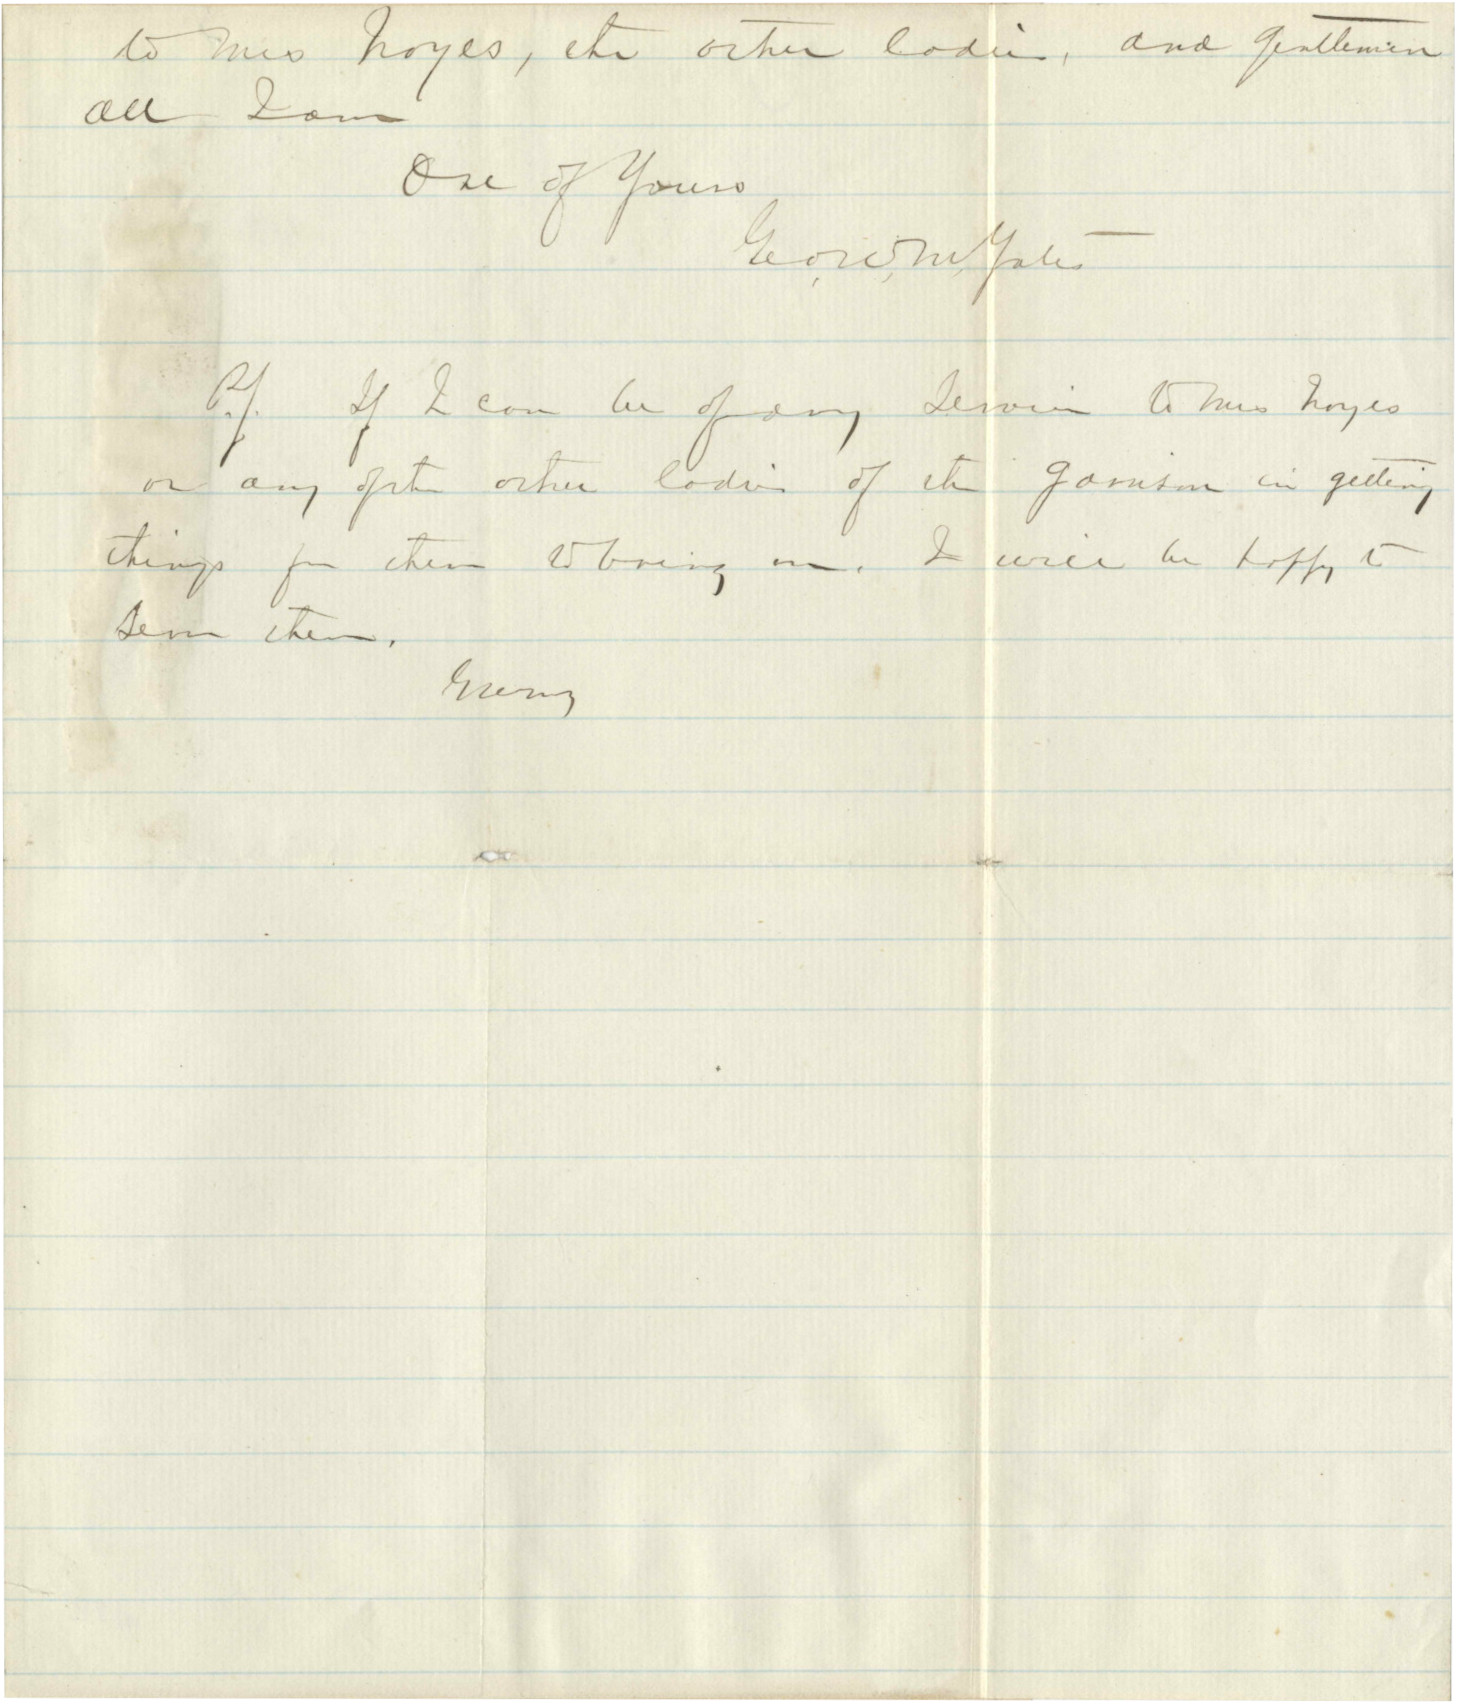 to Mrs Noyes, the other ladies, and gentlemen
all I am
One of Yours
Geo, W, M, Yates
P.S. If I can be of any service to Mrs Noyes
or any of the other ladies of the garrison in getting
things for them to bring on. I will be happy to
serve them.